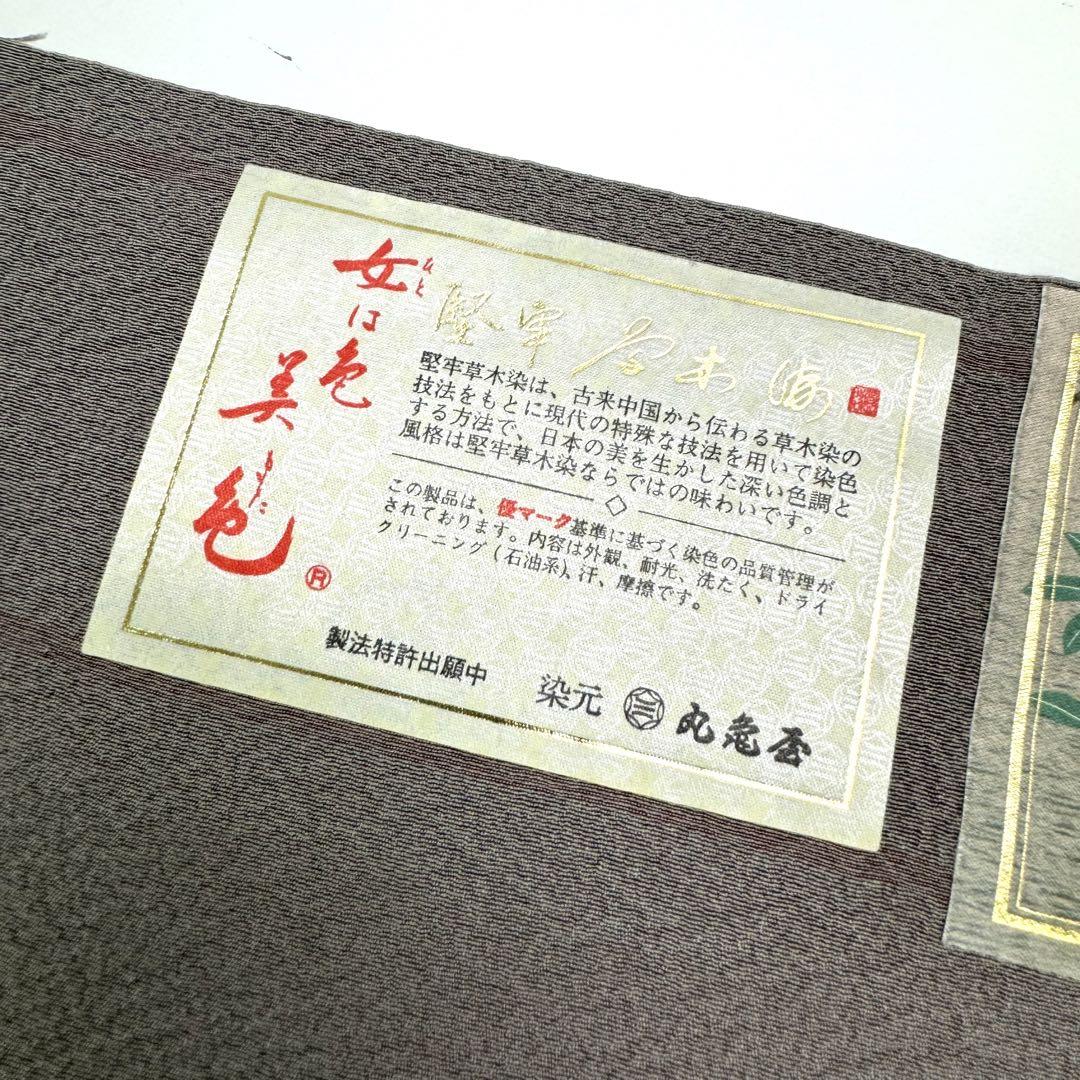 女は色
ひと
美色
もよた
®
堅牢草木染
堅牢草木染は、古来中国から伝わる草木染の
技法をもとに現代の特殊な技法を用いて染色
する方法で、日本の美を生かした深い色調と
風格は堅牢草木染ならではの味わいです。
この製品は、優マーク基準に基づく染色の品質管理が
されております。内容は外観、耐光、洗たく、ドライ
クリーニング(石油系)、汗、摩擦です。
製法特許出願中
染元 三 丸亀屋